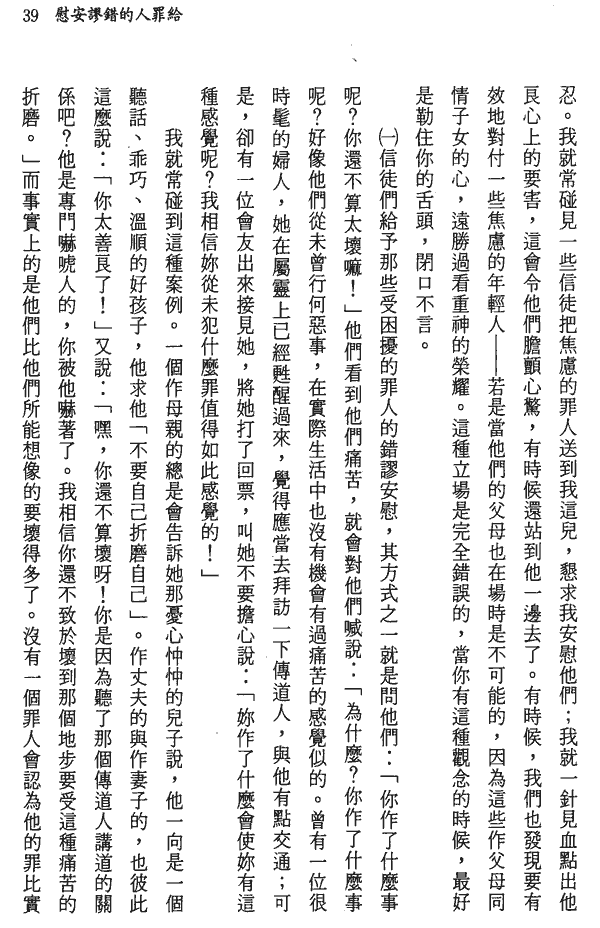 39 慰安謬錯的人罪給
忍。我就常碰見一些信徒把焦慮的罪人送到我這兒，懇求我安慰他們；我就一針見血點出他
良心上的要害，這會令他們膽顫心驚，有時候還站到他一邊去了。有時候，我們也發現要有
效地對付一些焦慮的年輕人——若是當他們的父母也在場時是不可能的，因為這些作父母同
情子女的心，遠勝過看重神的榮耀。這種立場是完全錯誤的，當你有這種觀念的時候，最好
是勒住你的舌頭，閉口不言。
㈠信徒們給予那些受困擾的罪人的錯謬安慰，其方式之一就是問他們：「你作了什麼事
呢？你還不算太壞嘛！」他們看到他們痛苦，就會對他們喊說：「為什麼？你作了什麼事
呢？好像他們從未曾行何惡事，在實際生活中也沒有機會有過痛苦的感覺似的。曾有一位很
時髦的婦人，她在屬靈上已經甦醒過來，覺得應當去拜訪一下傳道人，與他有點交通；可
是，卻有一位會友出來接見她，將她打了回票，叫她不要擔心說：「妳作了什麼會使妳有這
種感覺呢？我相信妳從未犯什麼罪值得如此感覺的！」
我就常碰到這種案例。一個作母親的總是會告訴她那憂心忡忡的兒子說，他一向是一個
聽話、乖巧、溫順的好孩子，他求他「不要自己折磨自己」。作丈夫的與作妻子的，也彼此
這麼說：「你太善良了！」又說：「嘿，你還不算壞呀！你是因為聽了那個傳道人講道的關
係吧？他是專門嚇唬人的，你被他嚇著了。我相信你還不致於壞到那個地步要受這種痛苦的
折磨。」而事實上的是他們比他們所能想像的要壞得多了。沒有一個罪人會認為他的罪比實